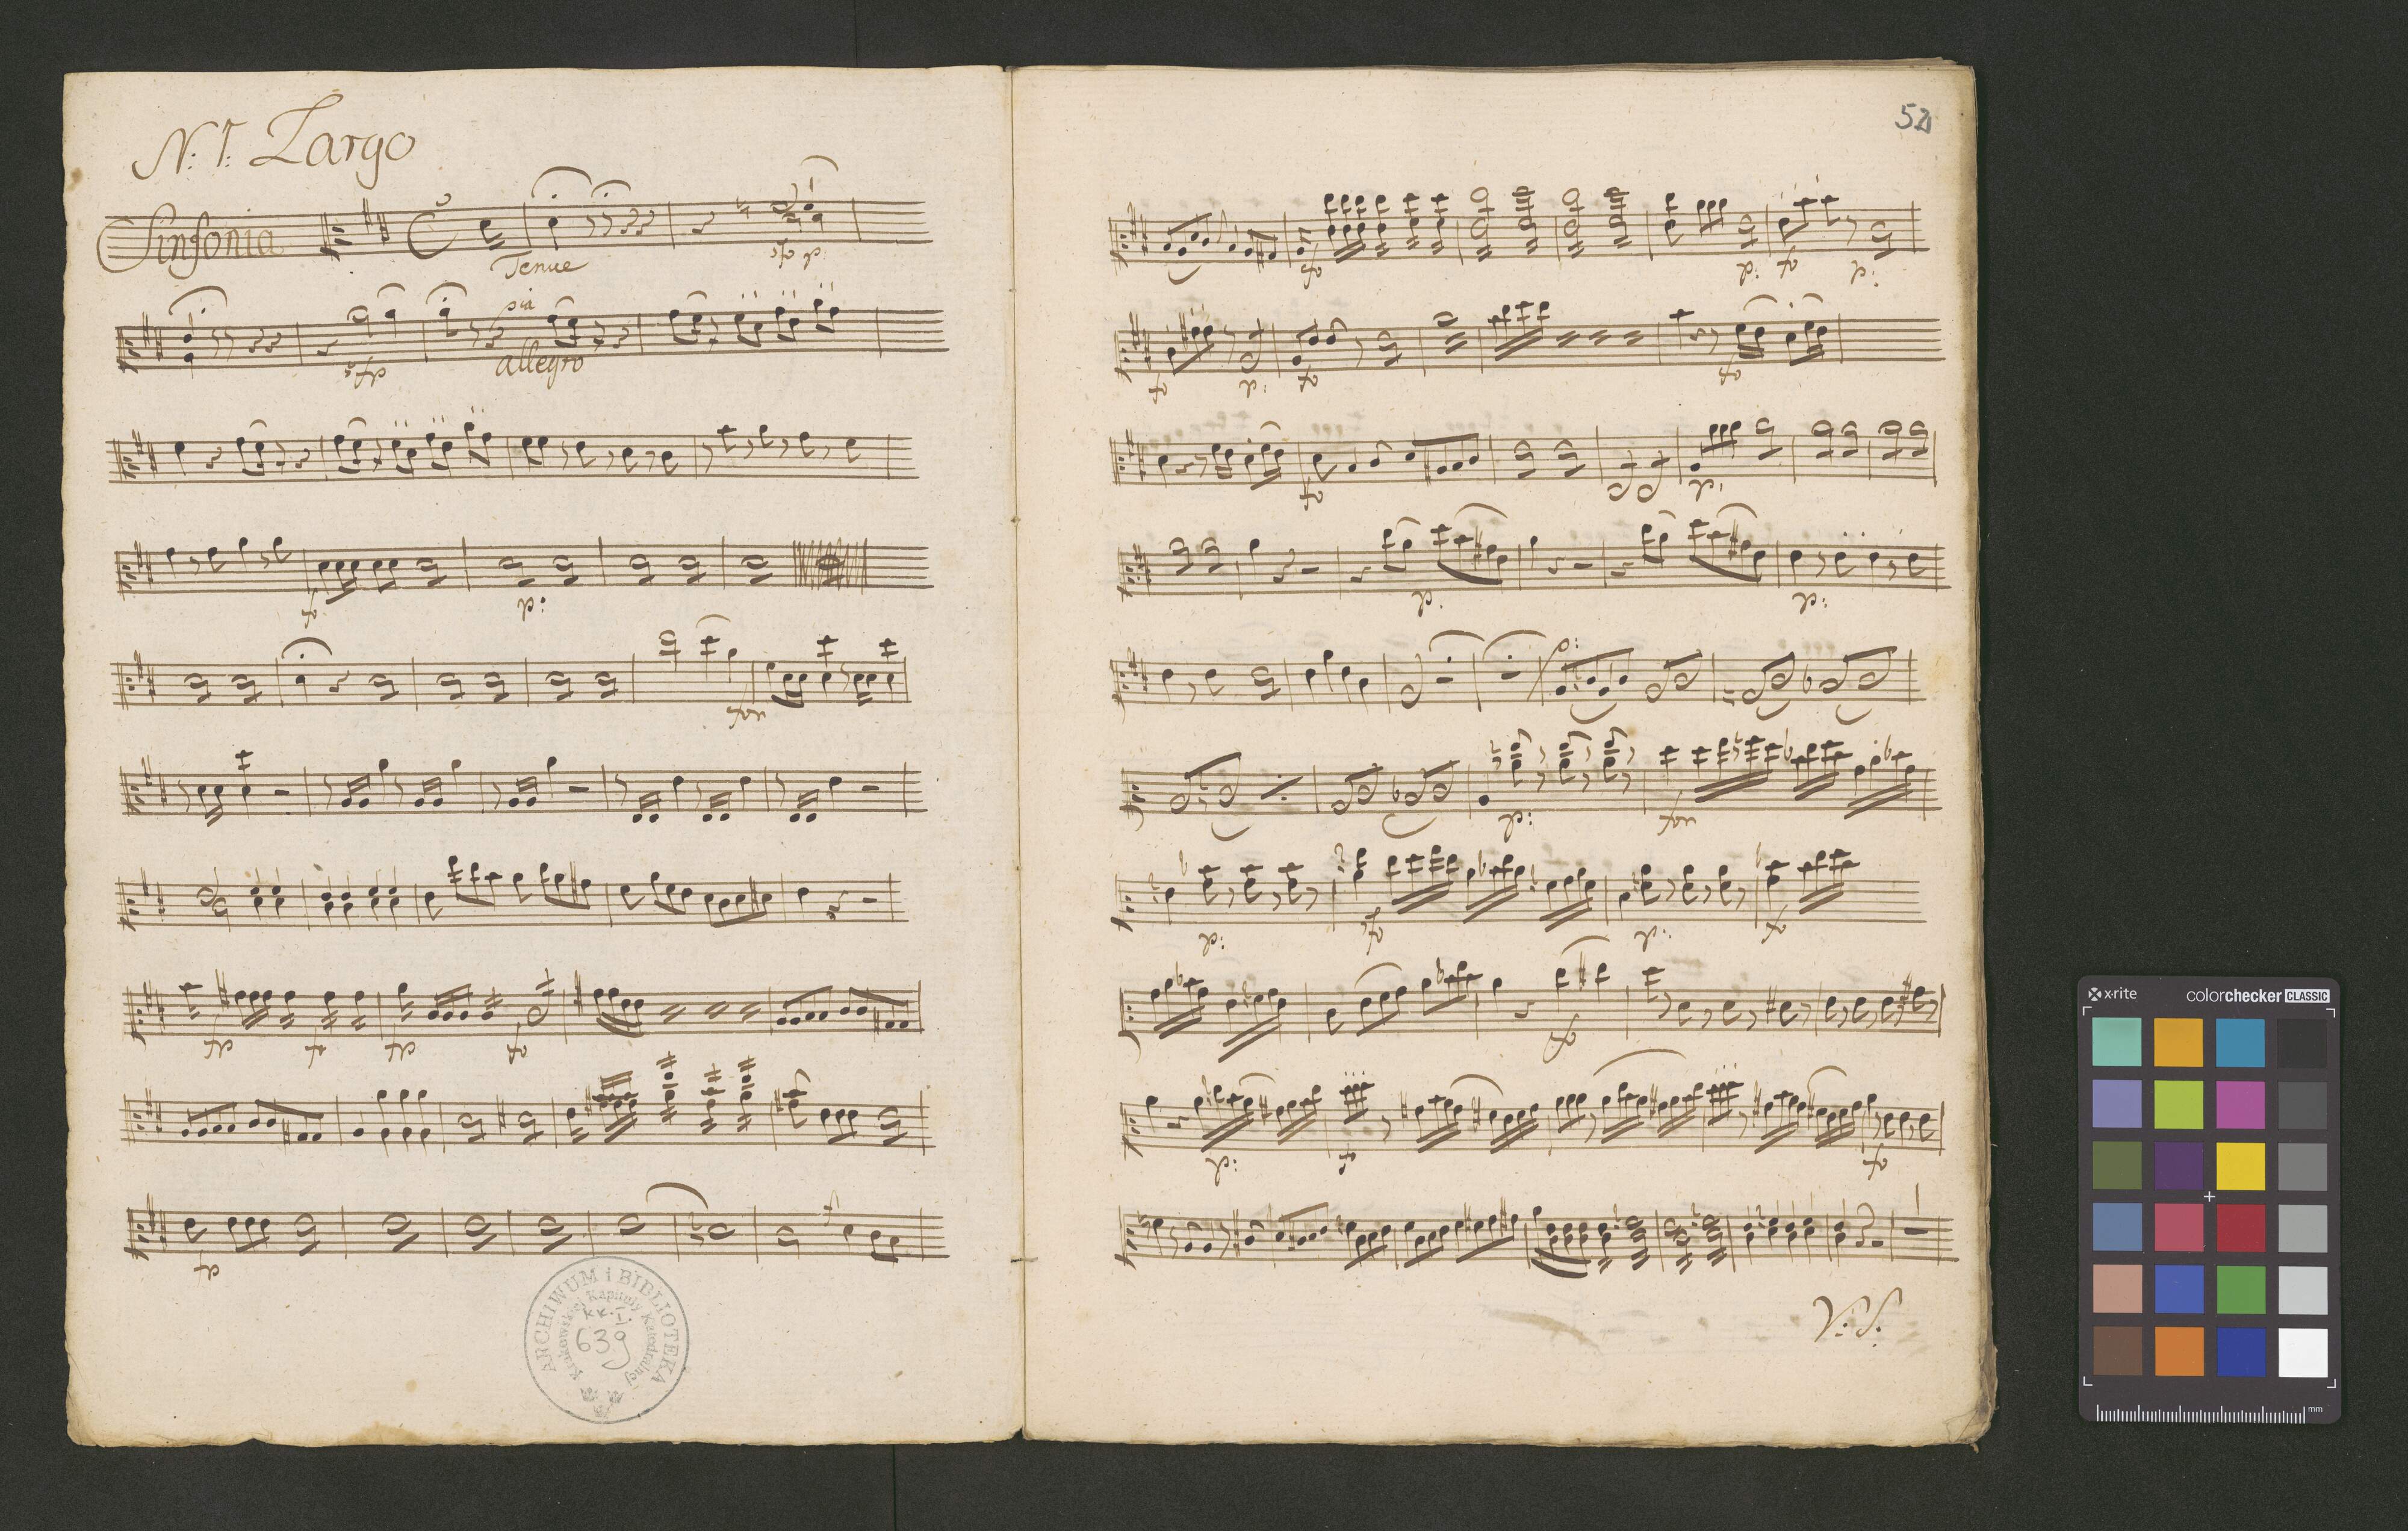 N: 1: Largo
Sinfonia
Tenue
sfp
sfp
pia
allegro
f
p:
for
fp
f
fp
f
f
ARCHIWUM i BIBLIOTEKA
Krakowskiej Kapituły Katedralnej
KK. I.
639
52
f
p:
f
p:
f
p:
f
f
f
p:
p:
p:
p:
for
p:
f
p:
f
p:
f
f
V: S:
x-rite
colorchecker CLASSIC
mm